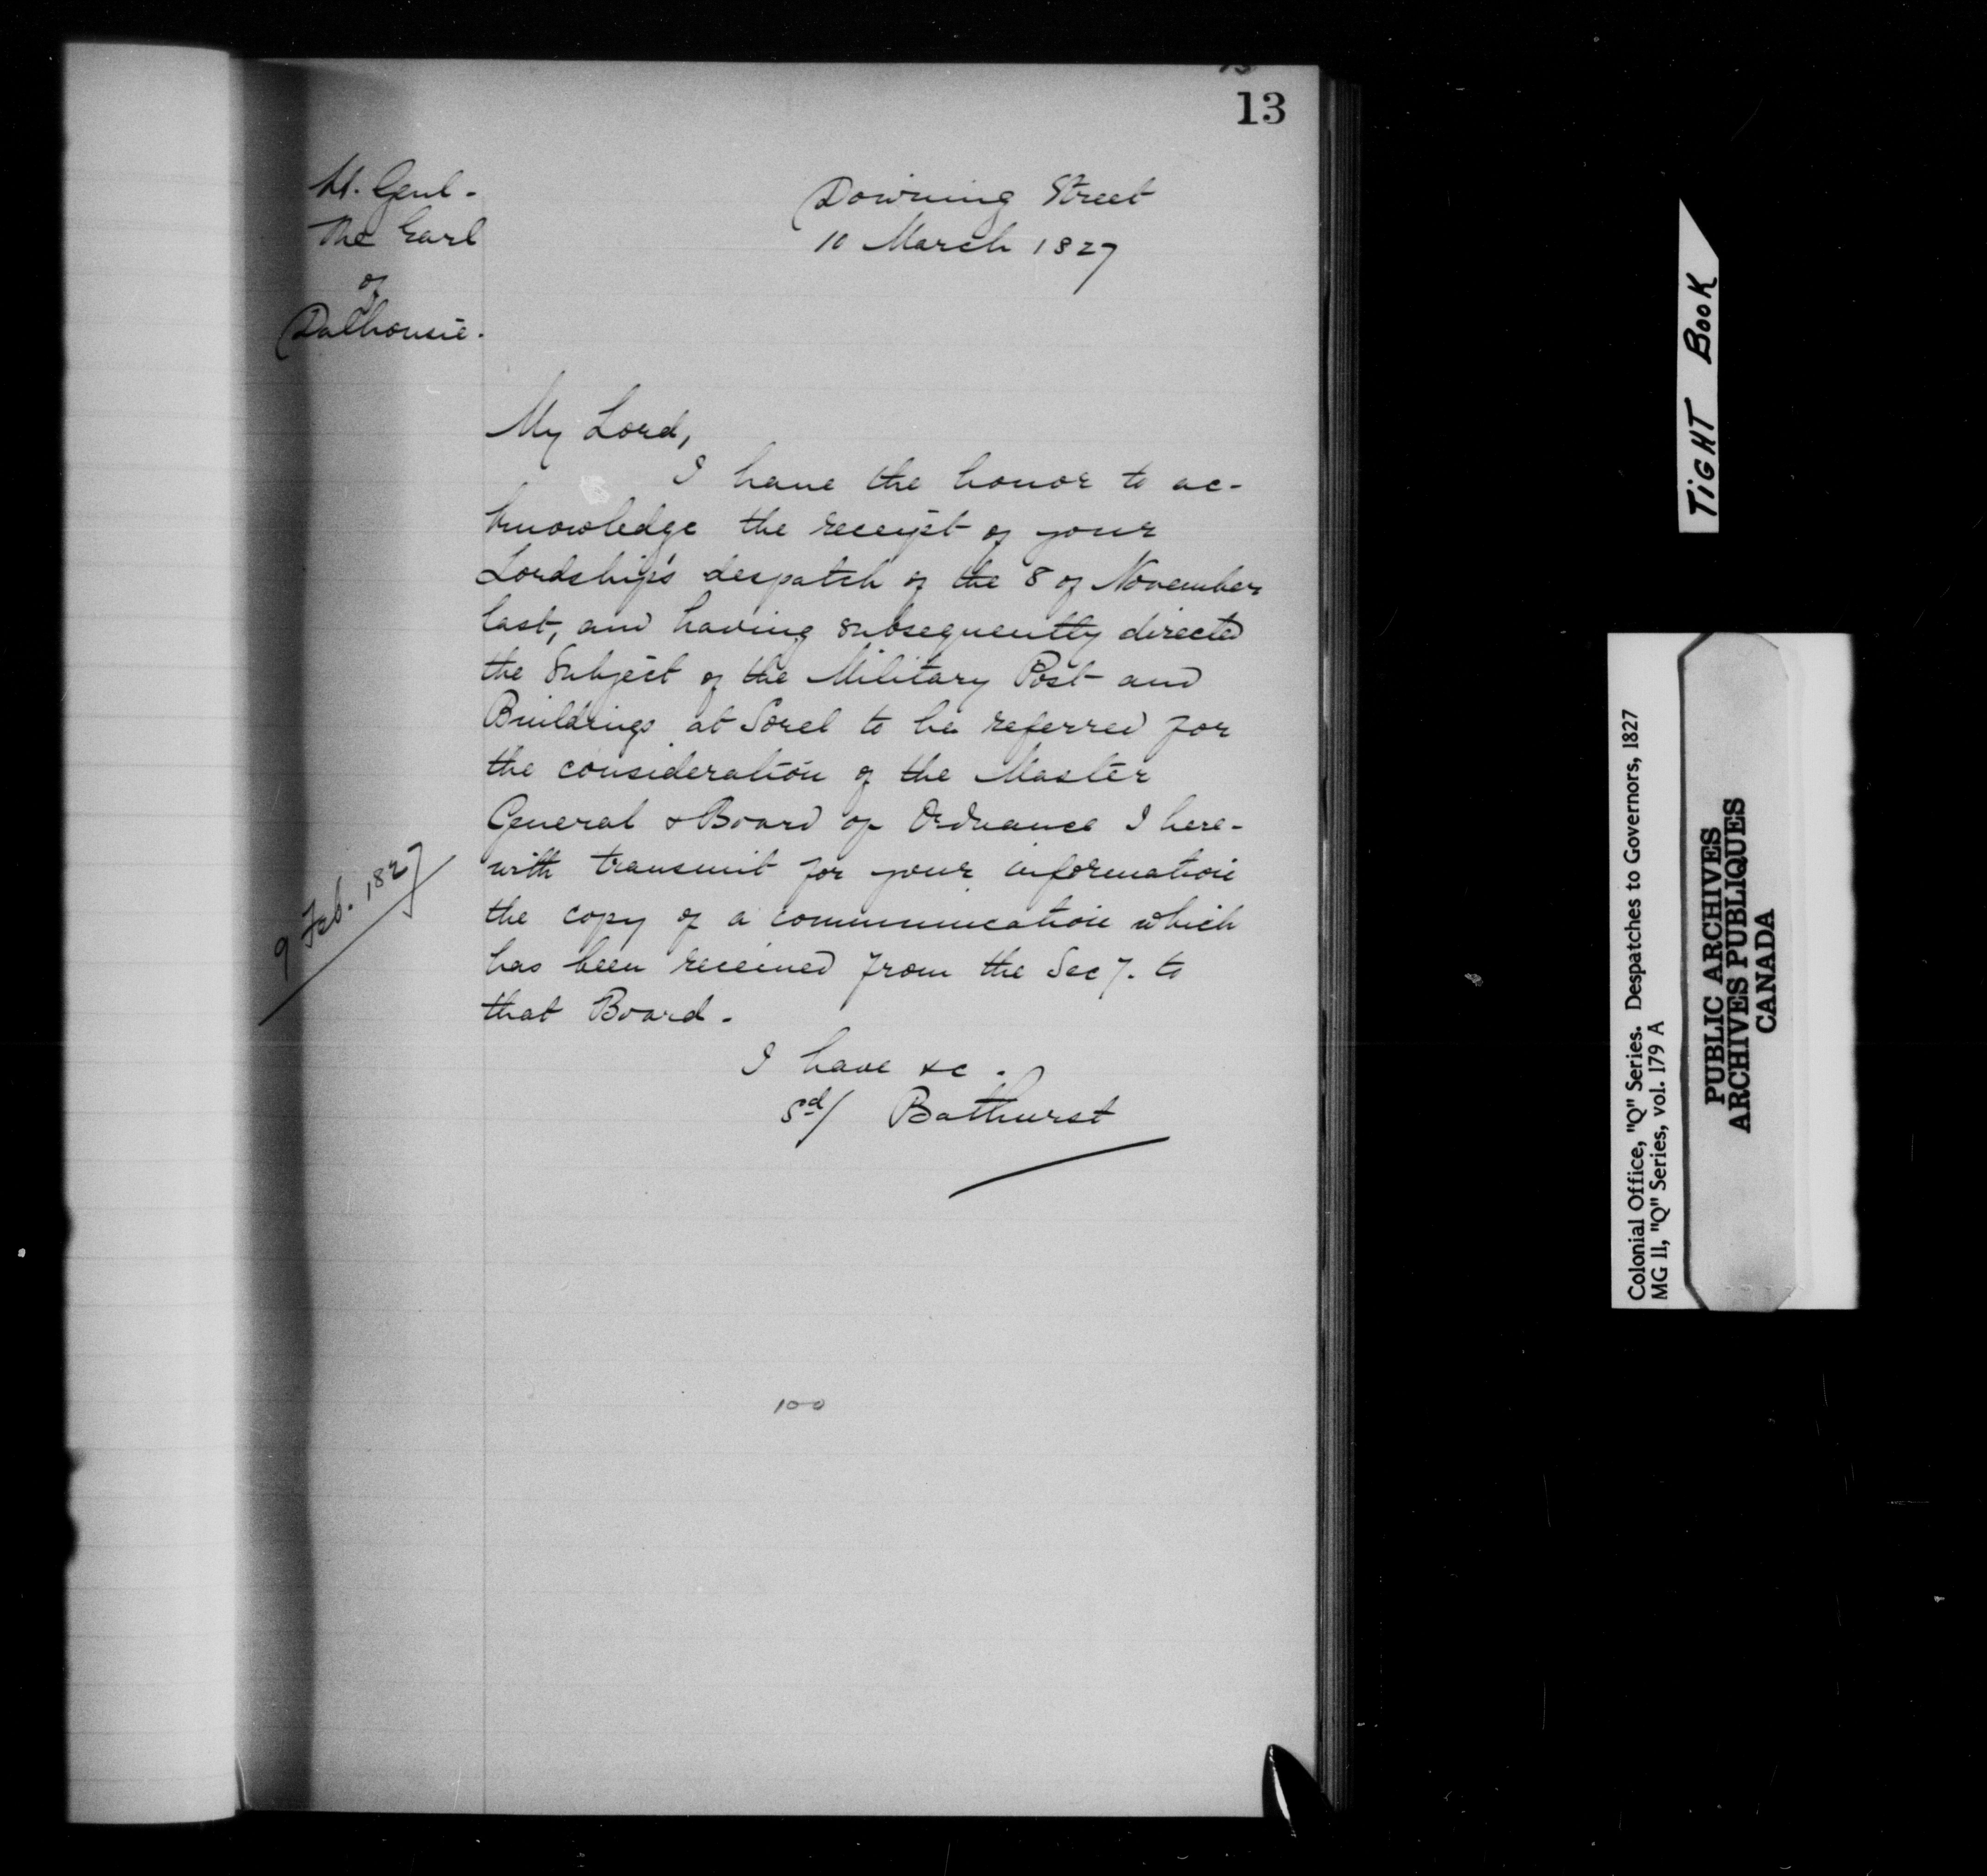 13
Lt. Genl.
The Earl
of
Dalhousie.
Downing Street
10 March 1827
My Lord,
I have the honor to ac-
knowledge the receipt of your
Lordship's despatch of the 8 of November
last, and having subsequently directed
the Subject of the Military Post and
Buildings at Sorel to be referred for
the consideration of the Master
General & Board of Ordnance I here-
with transmit for your information
the copy of a communication which
has been received from the Secy. to
that Board.
9 Feb. 1827
I have &c.
Sd/ Bathurst
100
TIGHT BOOK
Colonial Office, "Q" Series. Despatches to Governors, 1827
MG 11, "Q" Series, vol. 179 A
PUBLIC ARCHIVES
ARCHIVES PUBLIQUES
CANADA